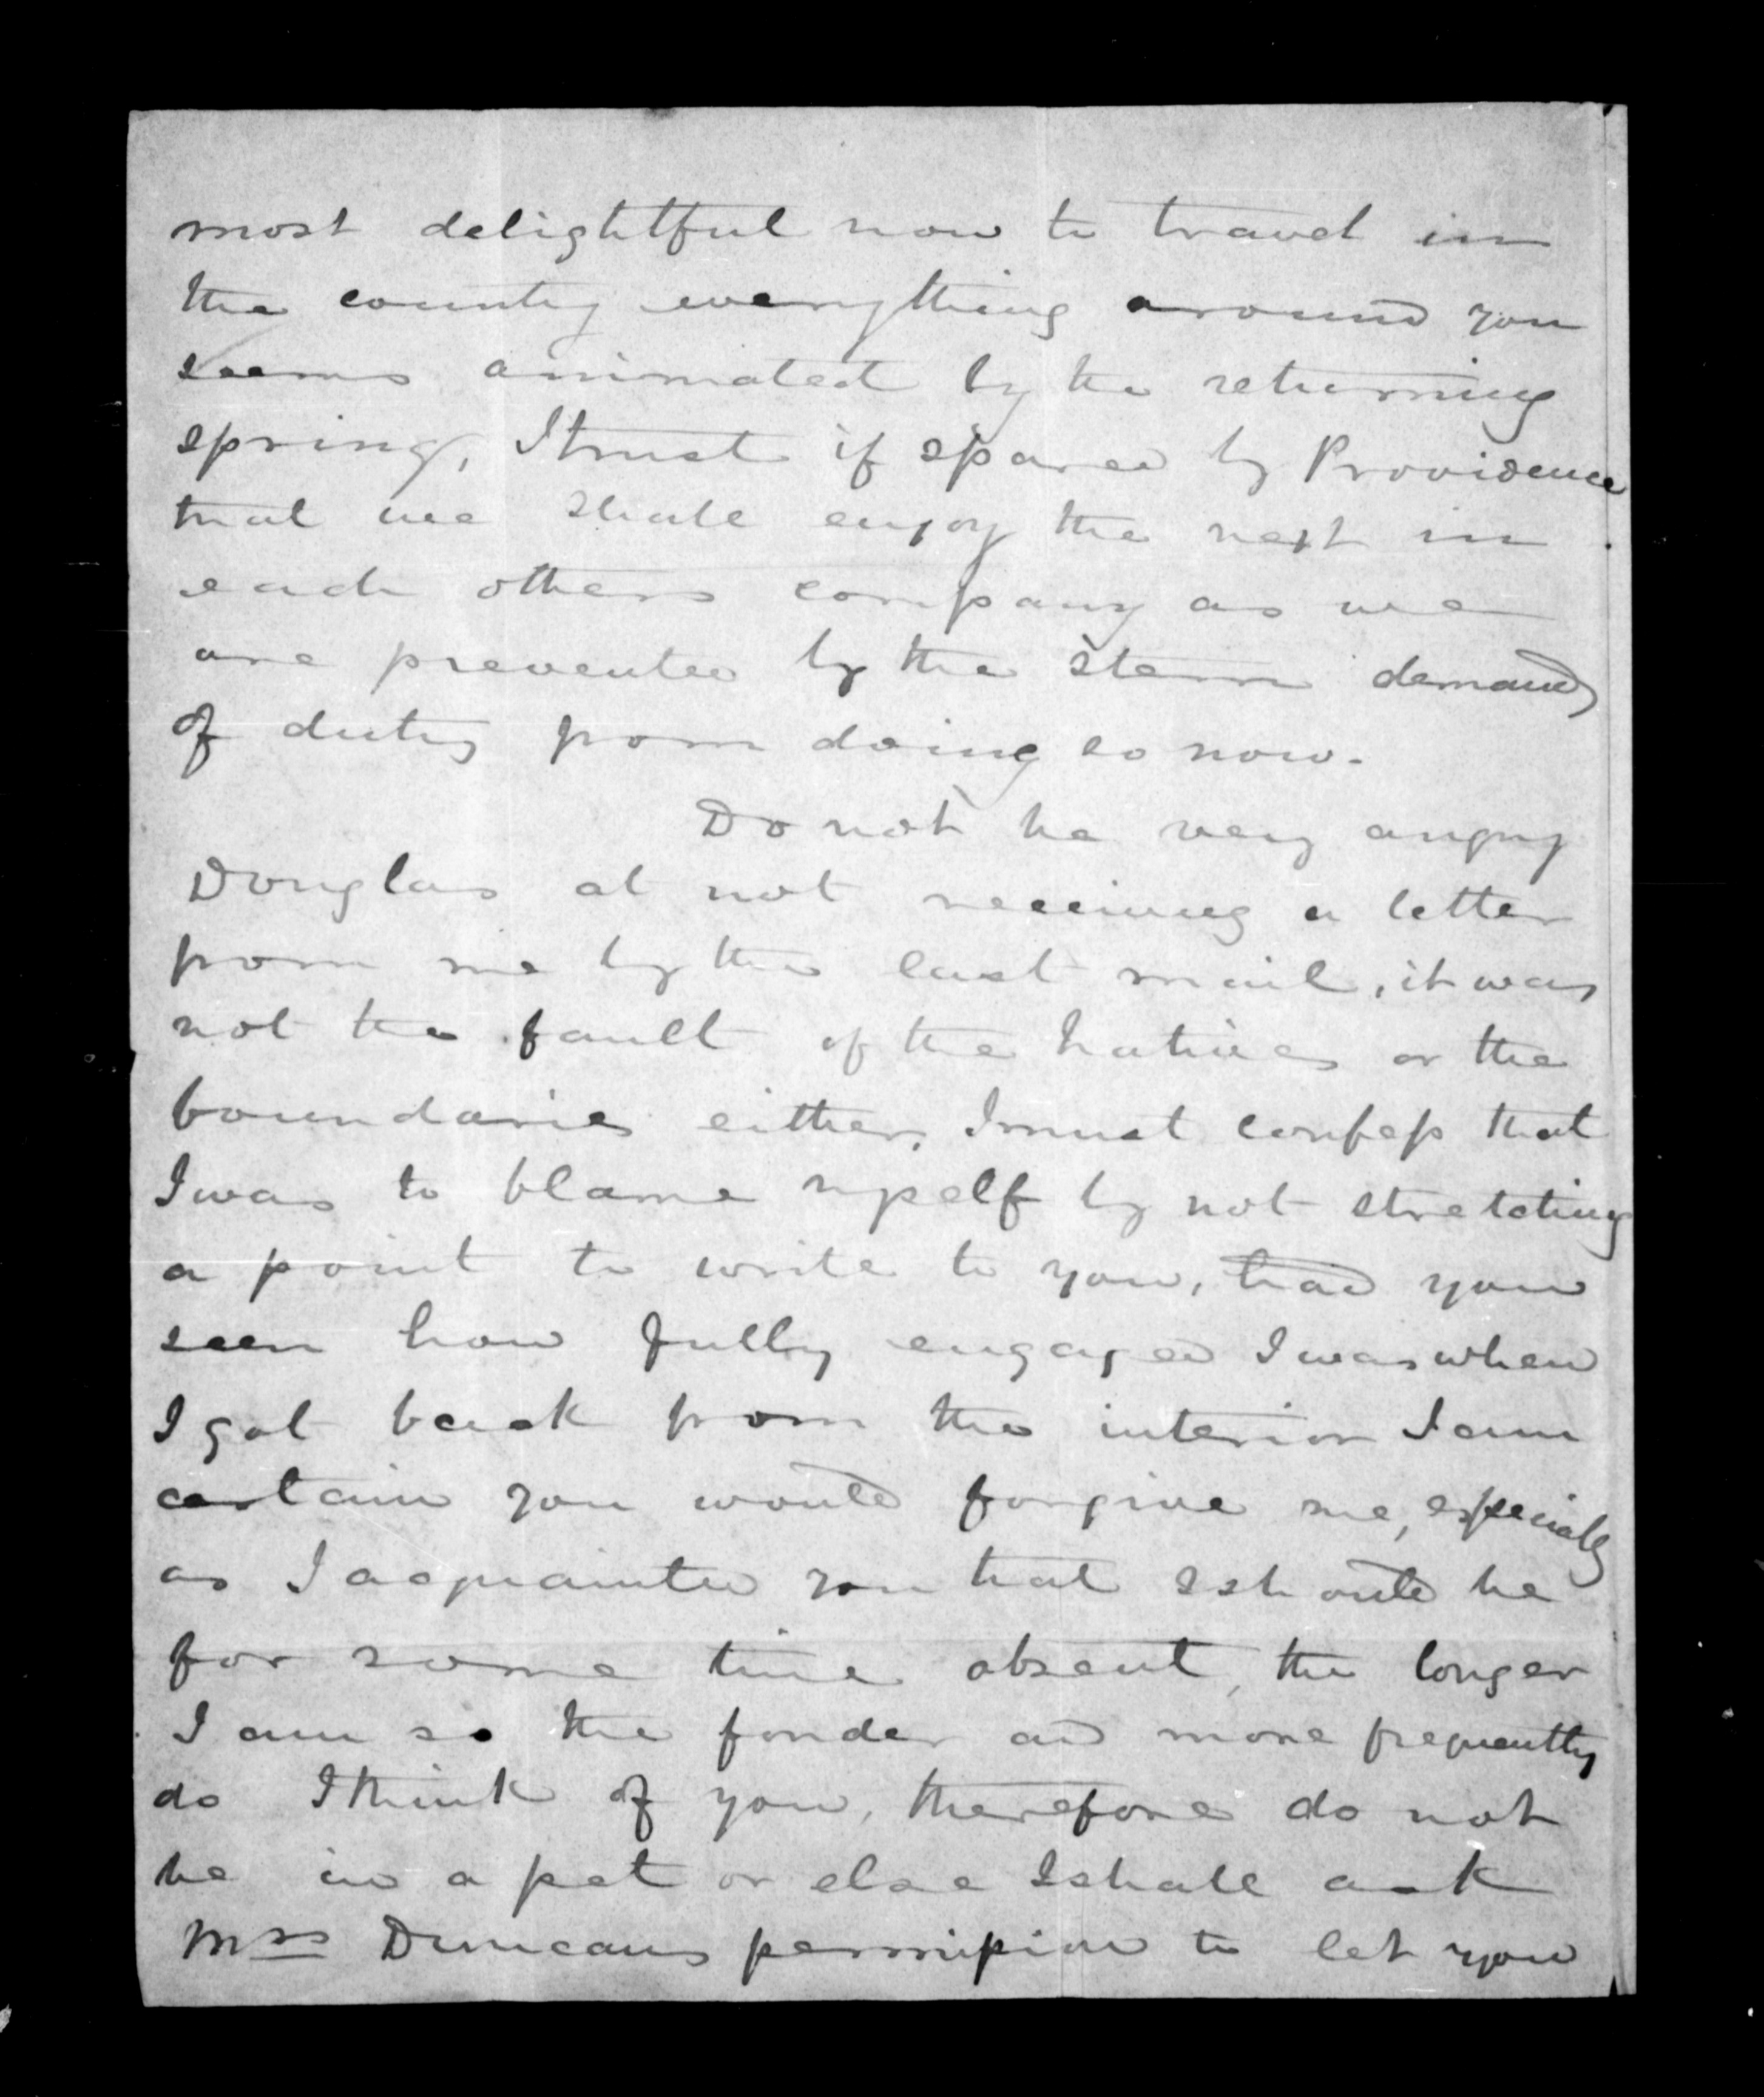 most delightful now to travel in
the country everything around you
seems animated by the returning
spring, I trust if spared by Providence
that we shall enjoy the next in
each others company as we
are prevented by the stern demands
of duty from doing so now.
Do not be very angry
Douglas at not receiving a letter
from me by the last mail, it was
not the fault of the natives or the
boundaries either, I must confess that
I was to blame myself by not stretching
a point to write to you, had you
seen how fully engaged I was when
I got back from the interior I am
certain you would forgive me, especially
as I acquainted you that I should be
for some time absent, the longer
I am so the fonder and more frequently
do I think of you, therefore do not
be in a pet or else I shall ask
Mrs Duncans permission to let you